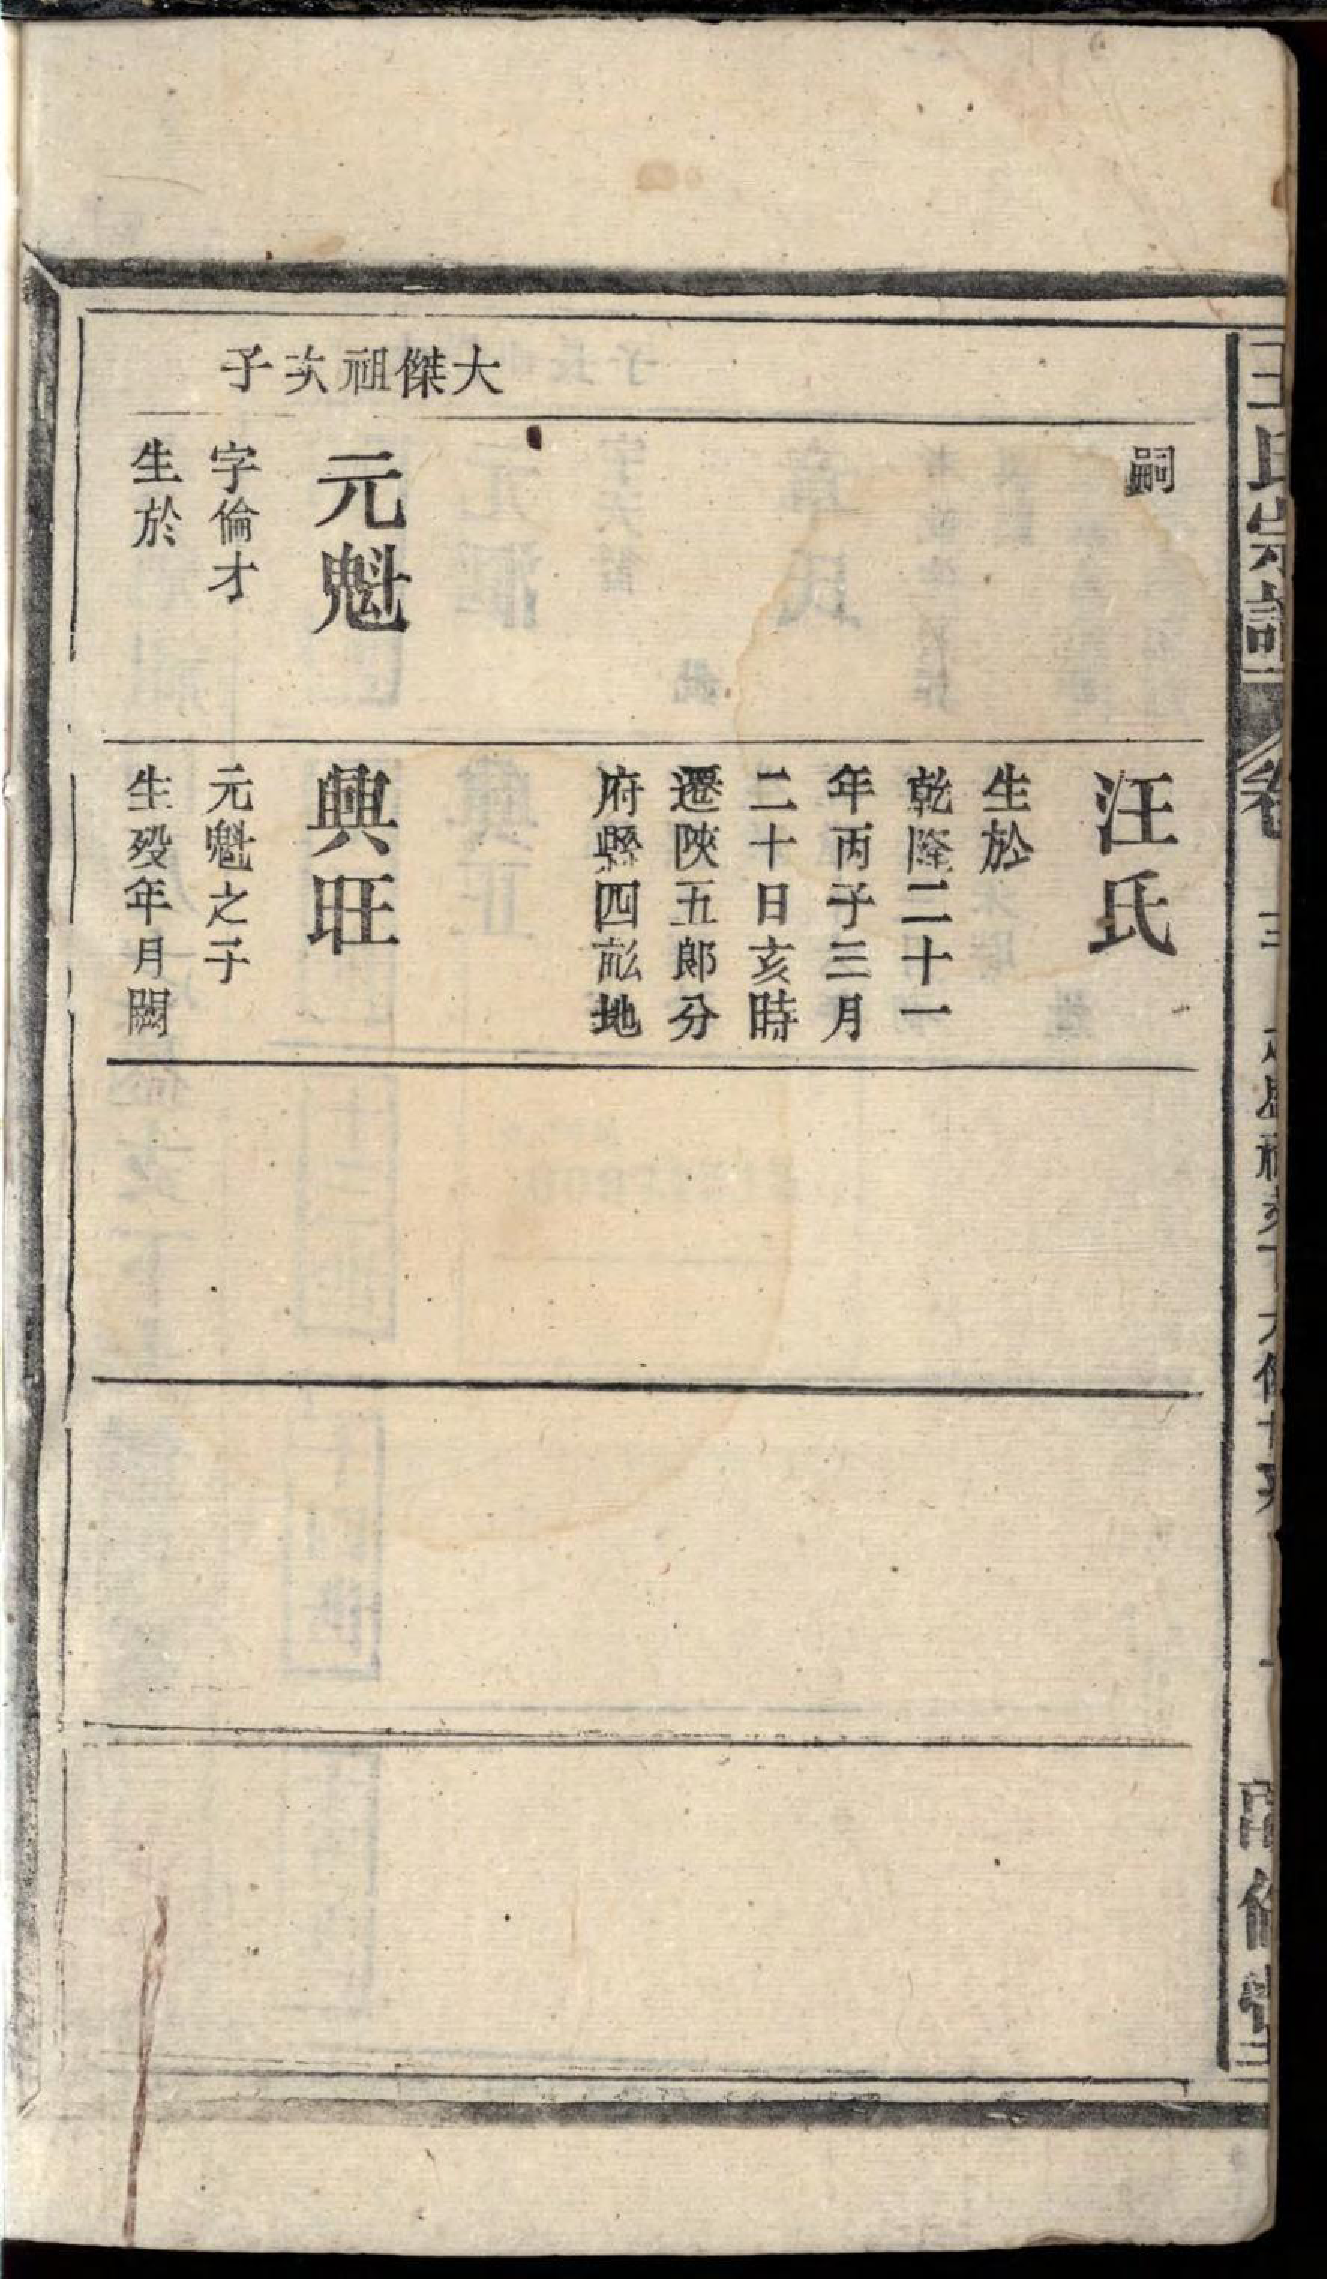 王氏宗譜
卷
三
大傑祖次子
嗣
元魁
字倫才
生於
汪氏
生於
乾隆二十一
年丙子三月
二十日亥時
遷陝五郎分
府縣四
地
興旺
元魁之子
生殁年月闕